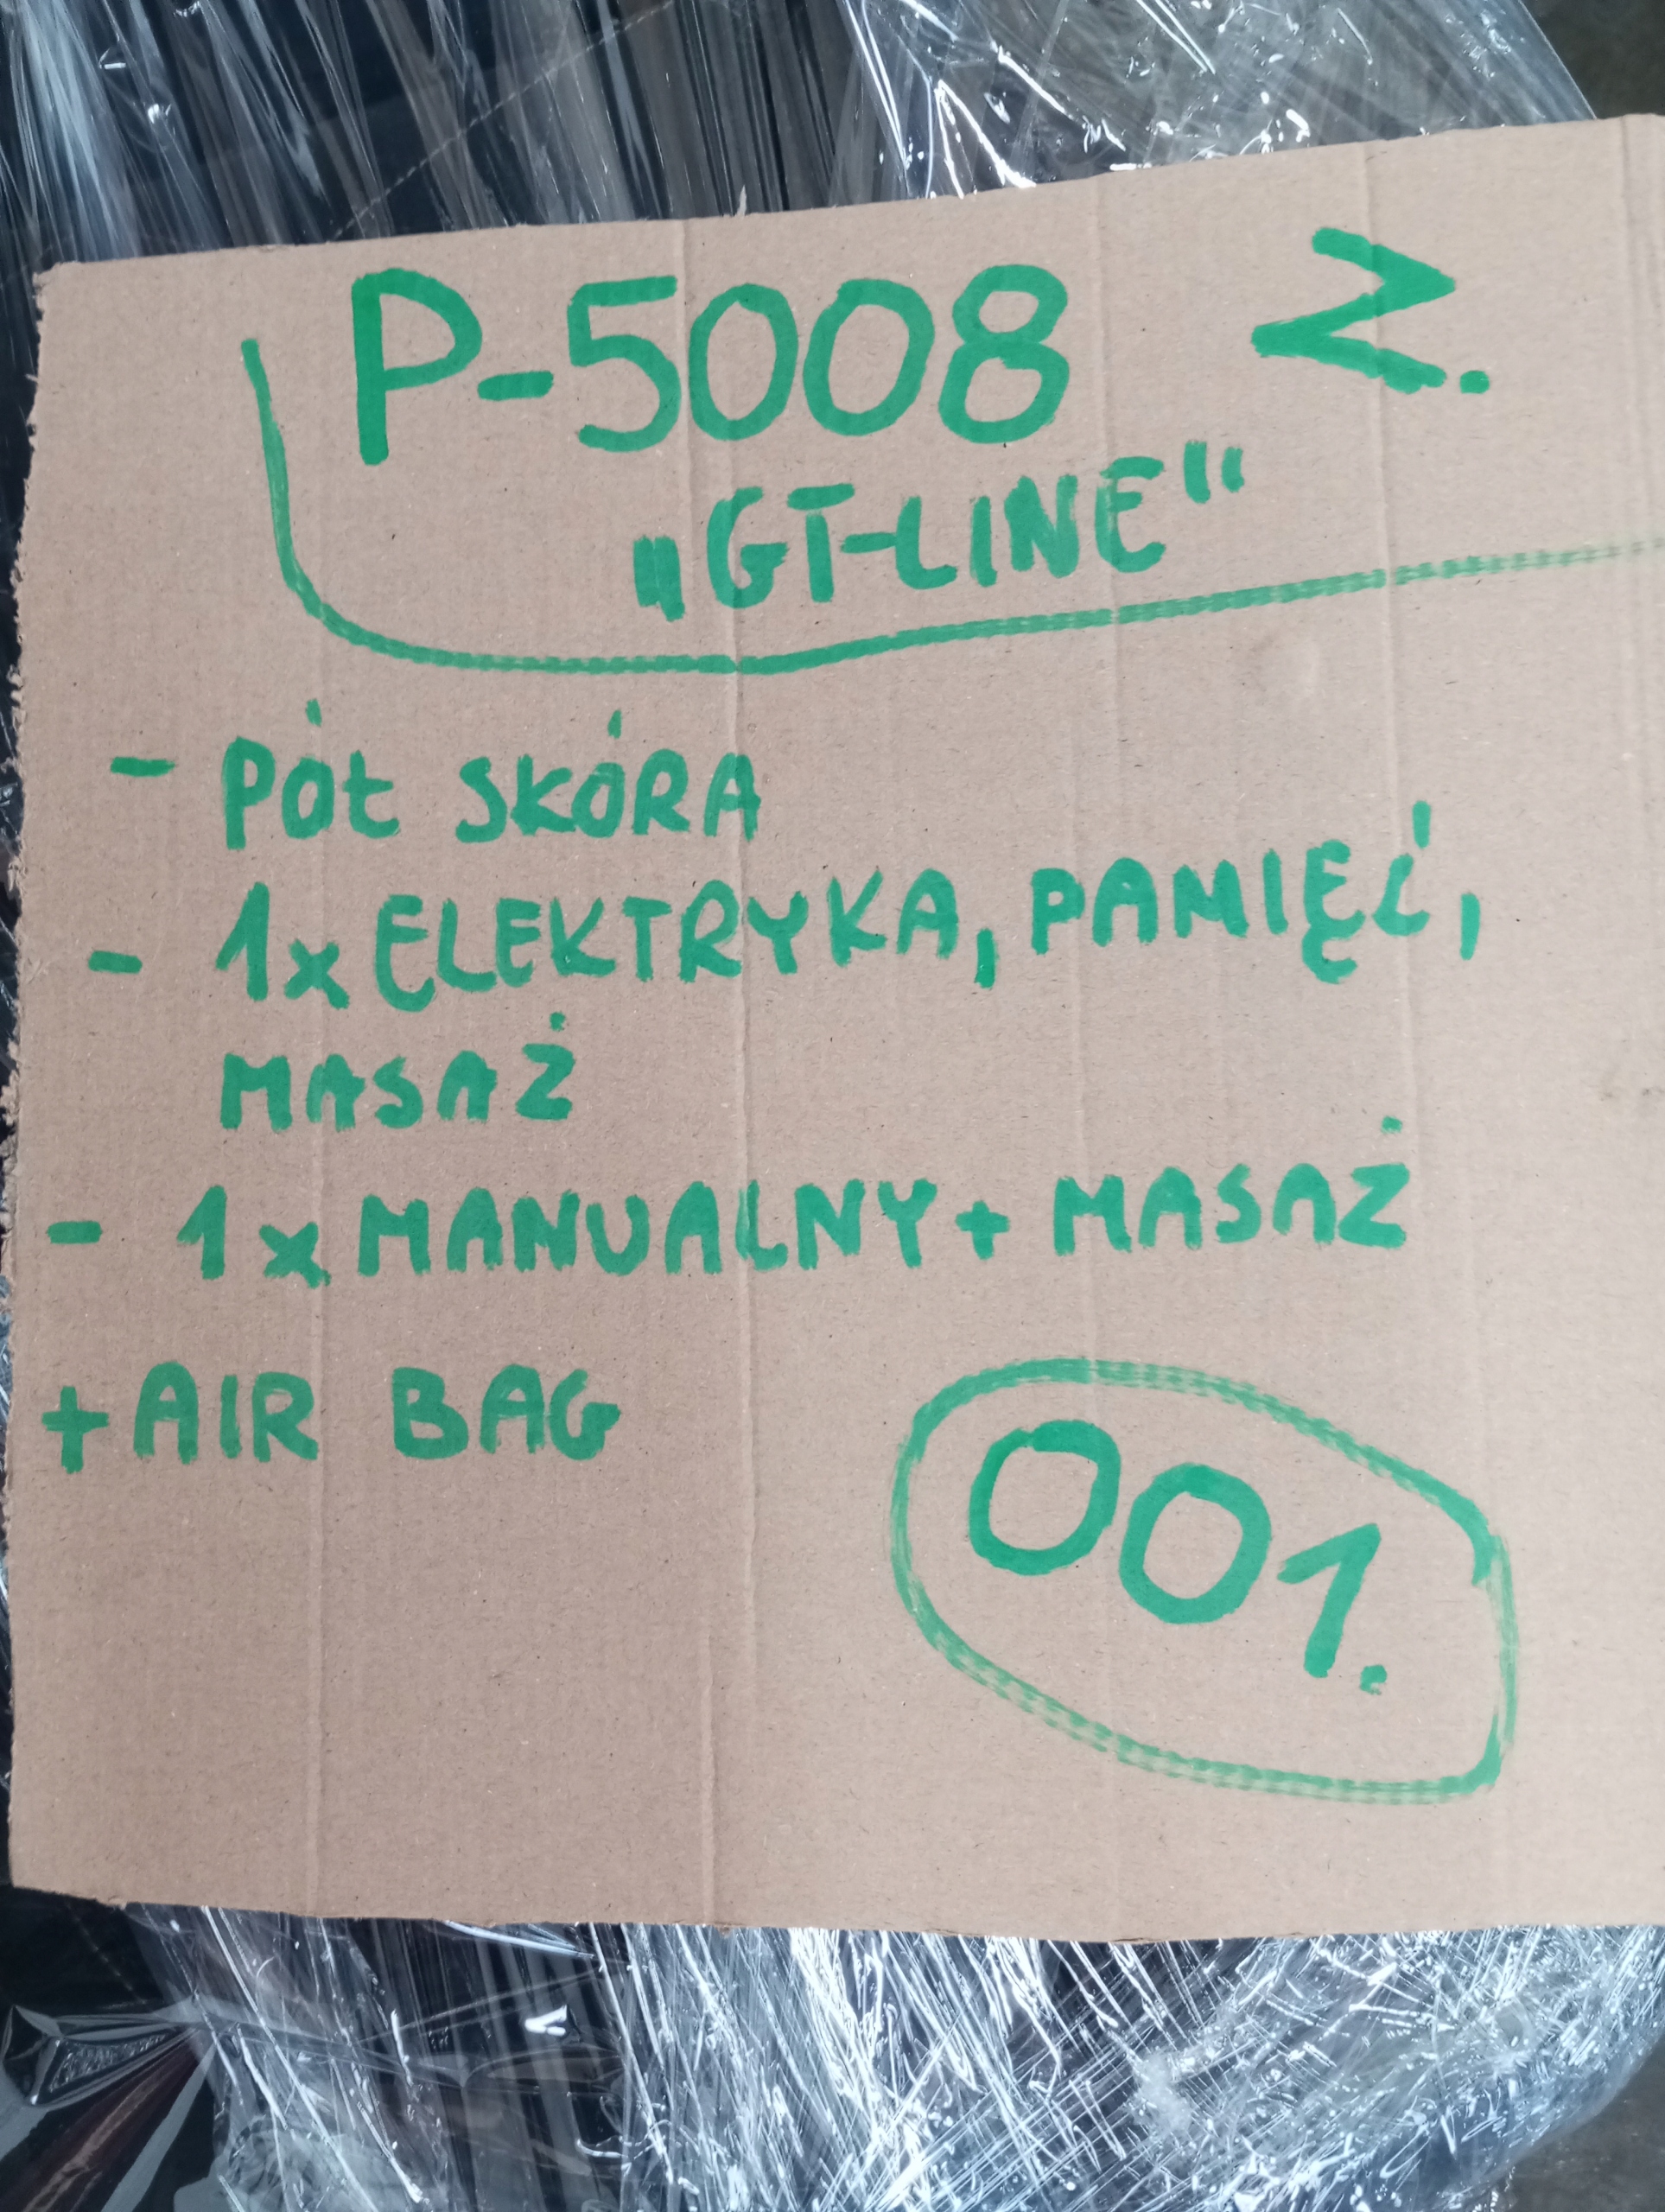 P-5008 2.
„GT-LINE"
- PÓŁ SKÓRA
- 1x ELEKTRYKA, PAMIĘĆ,
MASAŻ
- 1x MANUALNY + MASAŻ
+ AIR BAG
001.